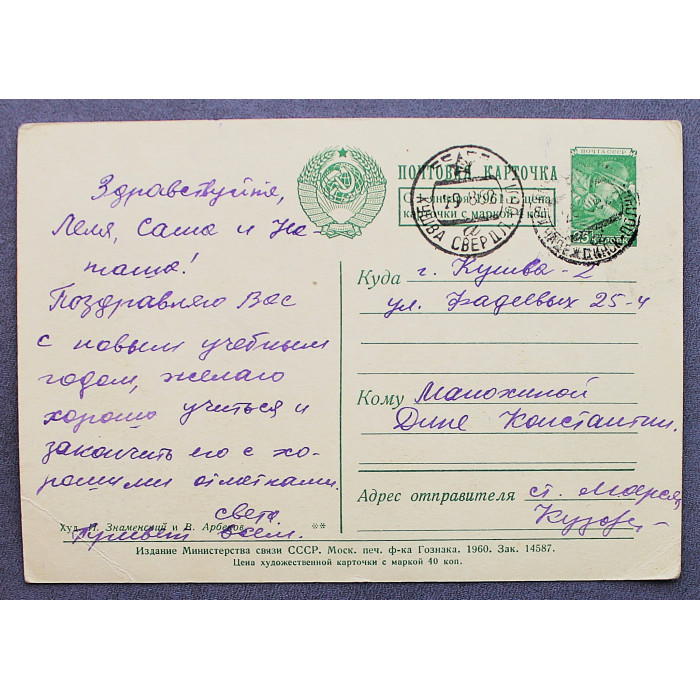 ПОЧТОВАЯ КАРТОЧКА
С 1 января 1961 г. цена
карточки с маркой 4 коп.
ПОЧТА СССР
Здравствуйте,
Леля, Саша и На-
таша!
Поздравляю Вас
с новым учебным
годом, желаю
хорошо учиться и
закончить его с хо-
рошими отметками.
Света.
Привет всем.
Куда г. Кушва-2
ул. Фадеевых 25-4
Кому Манохиной
Дине Константин.
Адрес отправителя ст.
Худ. П. Знаменский и В. Арбеков **
Издание Министерства связи СССР. Моск. печ. ф-ка Гознака. 1960. Зак. 14587.
Цена художественной карточки с маркой 40 коп.